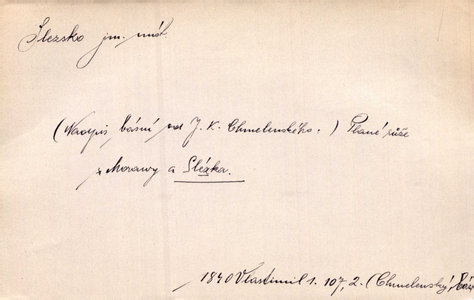 Slezsko jm. míst.
(Nadpis básní od J. K. Chmelenského.) Plané růže
z Morawy a Slézka.
1840 Vlastimil 1. 107, 2. (Chmelenský,